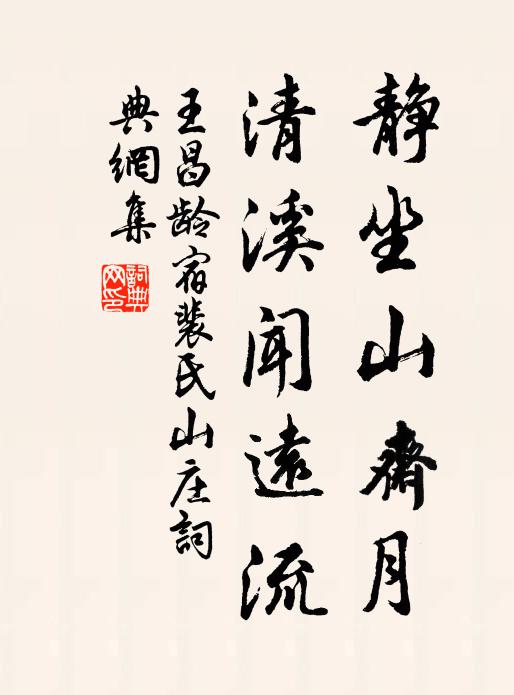 静坐山齋月
清溪闻遠流
王昌龄宿裴氏山庄詞
典網集
詞典网印